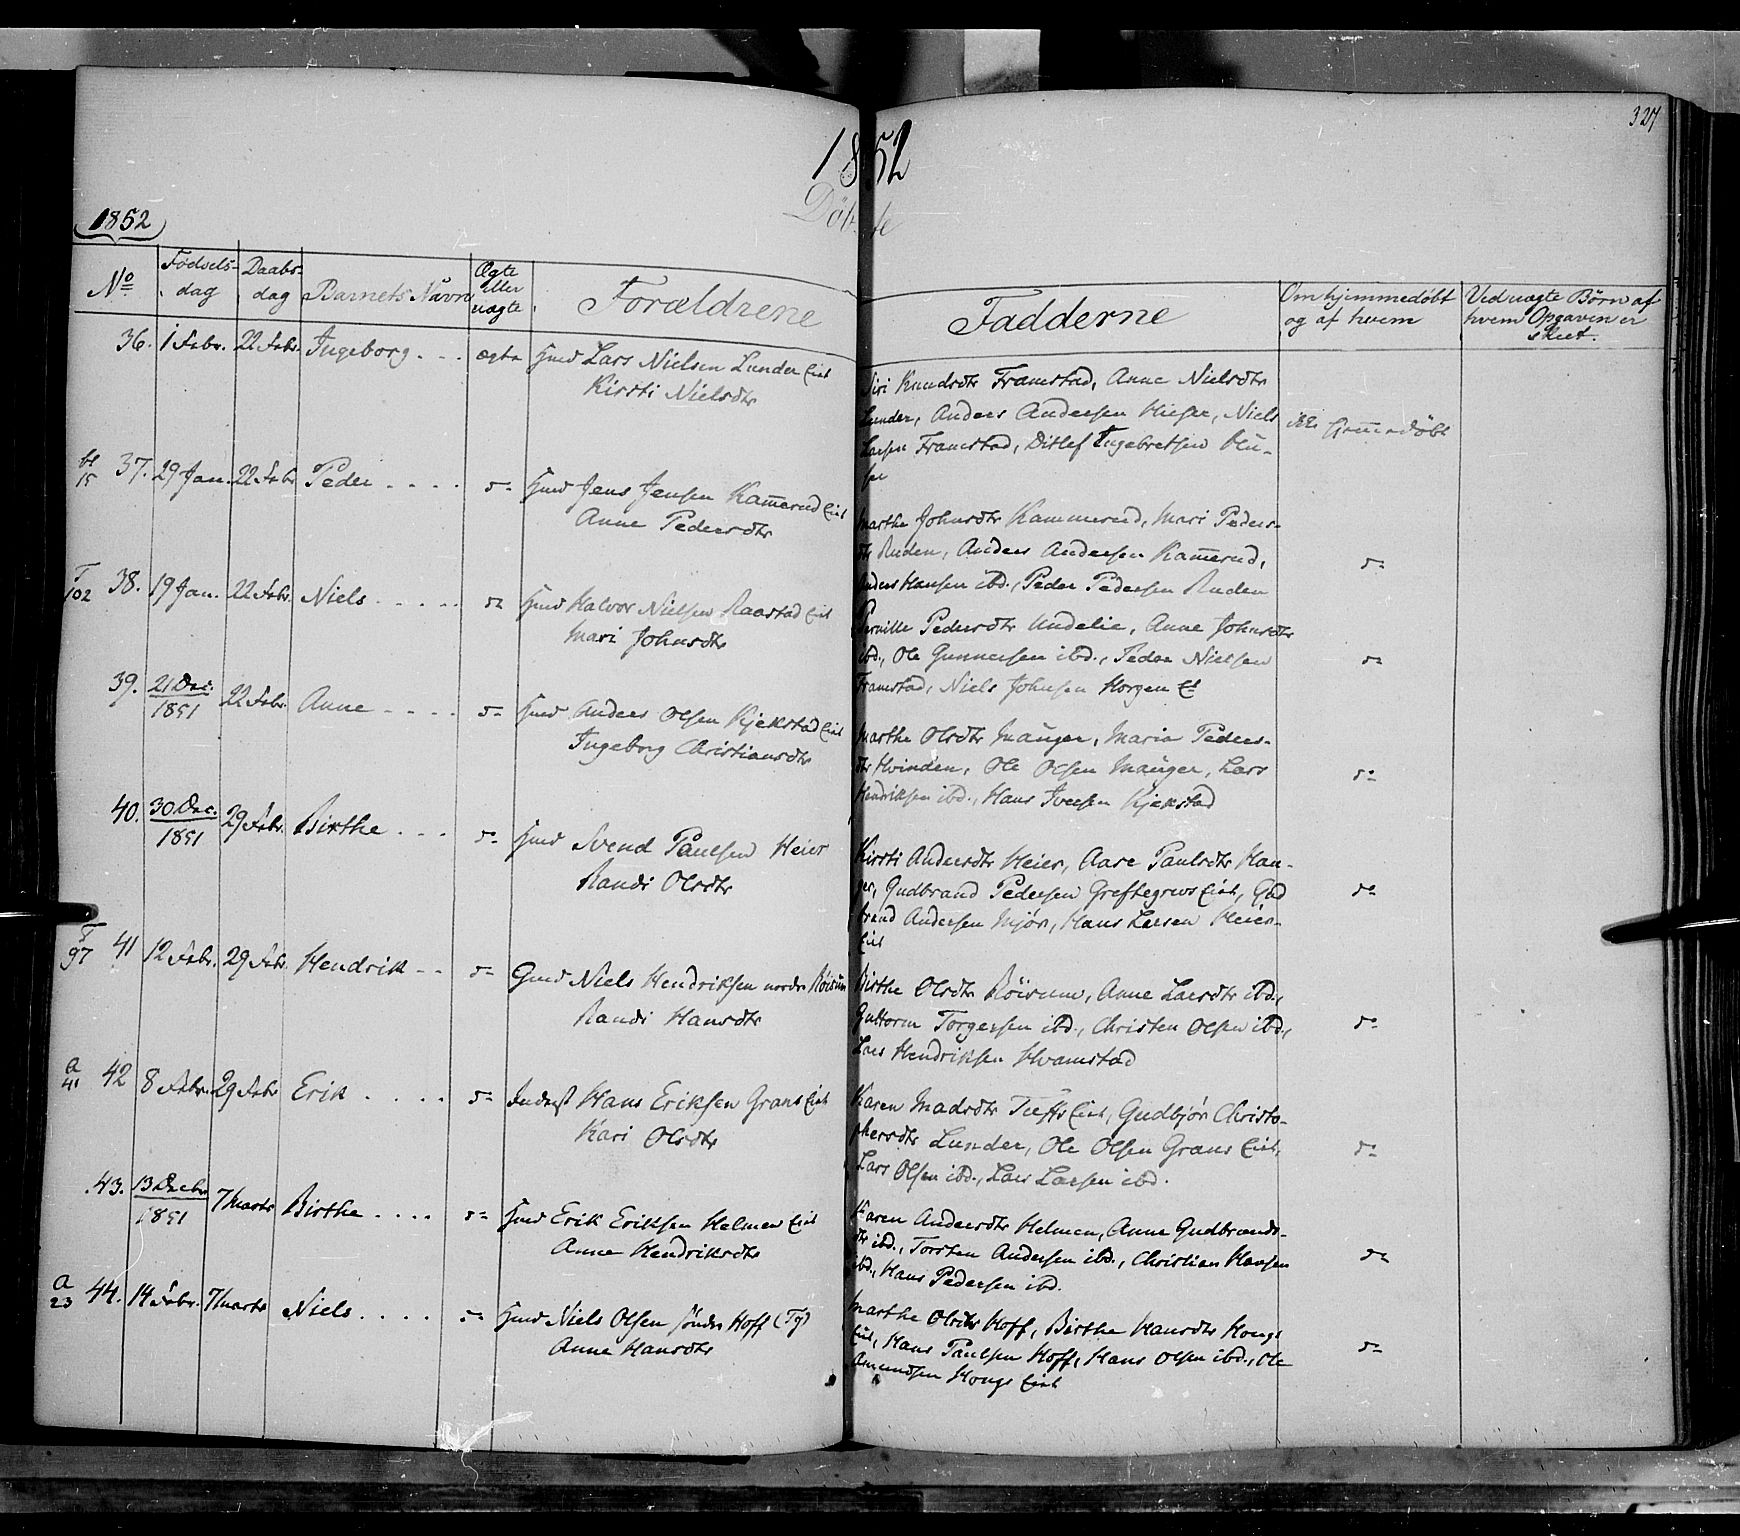 327
1852
Døbte
1852
No
Fødsels-
dag
Daabs-
dag
Barnets Navn
Ægte
eller
uægte
Forældrene
Fadderne
Om hjemmedøbt
og af hvem
Ved uægte Børn af
hvem Opgaven er
skeet.
36. 1 Febr. 22 Febr. Ingeborg . . . ægte Gmd Lars Nielsen Lunder Eiet
Kirsti Nielsdtr
Siri Knudsdtr Framstad, Anne Nielsdtr
Lunder, Anders Andersen, Niels
Larsen Framstad, Ditlef Ingebretsen
ikke hjemmedøbt
15 37. 29 Jan. 22 Febr. Peder . . . . do Gmd Jens Jensen Kammerud Eiet
Anne Pedersdtr
Marthe Johnsdtr Kammerud, Mari Peders-
dtr Ruden, Anders Andersen Kammerud,
Anders Hansen ibd., Peder Pedersen Ruden
do
T
102 38. 19 Jan. 22 Febr. Niels . . . . . do Gmd Halvor Nielsen Raastad Eiet
Mari Johnsdtr
Pernille Pedersdtr Undelie, Anne Johnsdtr
ibd., Ole Gunnersen ibd., Peder Nielsen
Framstad, Niels Johnsen Horgen
do
39. 21 Dec. 1851 22 Febr. Anne . . . . do Gmd Anders Olsen Kjekstad Eiet
Ingeborg Christiansdtr
Marthe Olsdtr Mauger, Maria Peders-
dtr Hvinden, Ole Olsen Mauger, Lars
Hendriksen ibd., Hans Iversen Kjekstad
do
40. 30 Dec. 1851 29 Febr. Birthe . . . do Gmd Svend Paulsen Heier
Randi Olsdtr
Kirsti Andersdtr Heier, Aase Paulsdtr Hau-
ger, Gudbrand Pedersen Greftegrev Eiet, Gud
brand Andersen Mjør, Hans Larsen Heier-
Eiet
do
97 41 12 Febr. 29 Febr. Hendrik . . do Gmd Niels Hendriksen nordre Røisum
Randi Hansdtr
Birthe Olsdtr Røisum, Anne Larsdtr ibd.,
Guttorm Torgersen ibd., Christen Olsen ibd.,
Lars Hendriksen Hvamstad
do
a
41 42 8 Febr. 29 Febr. Erik . . . . do Inderst Hans Eriksen Grans Eiet
Kari Olsdtr
Karen Madsdtr Eiet, Gudbjør Christo-
phersdtr Lunder, Ole Olsen Grans Eiet,
Lars Olsen ibd., Lars Larsen ibd.
do
43. 13 Decbr 1851 7 Marts Birthe . . . . do Gmd Erik Eriksen Helmen Eiet
Anne Hendriksdtr
Karen Andersdtr Helmen, Anne Gudbrands-
dtr ibd., Torsten Andersen ibd., Christian Hansen
ibd., Hans Pedersen ibd.
do
a
23 44. 14 Febr. 7 Marts Niels . . . . do Gmd Niels Olsen søndre Hoff (Tg)
Anne Hansdtr
Marthe Olsdtr Hoff, Birthe Hansdtr Hougs
Eiet, Hans Paulsen Hoff, Hans Olsen ibd., Ole
Amundsen Hougs Eiet
do